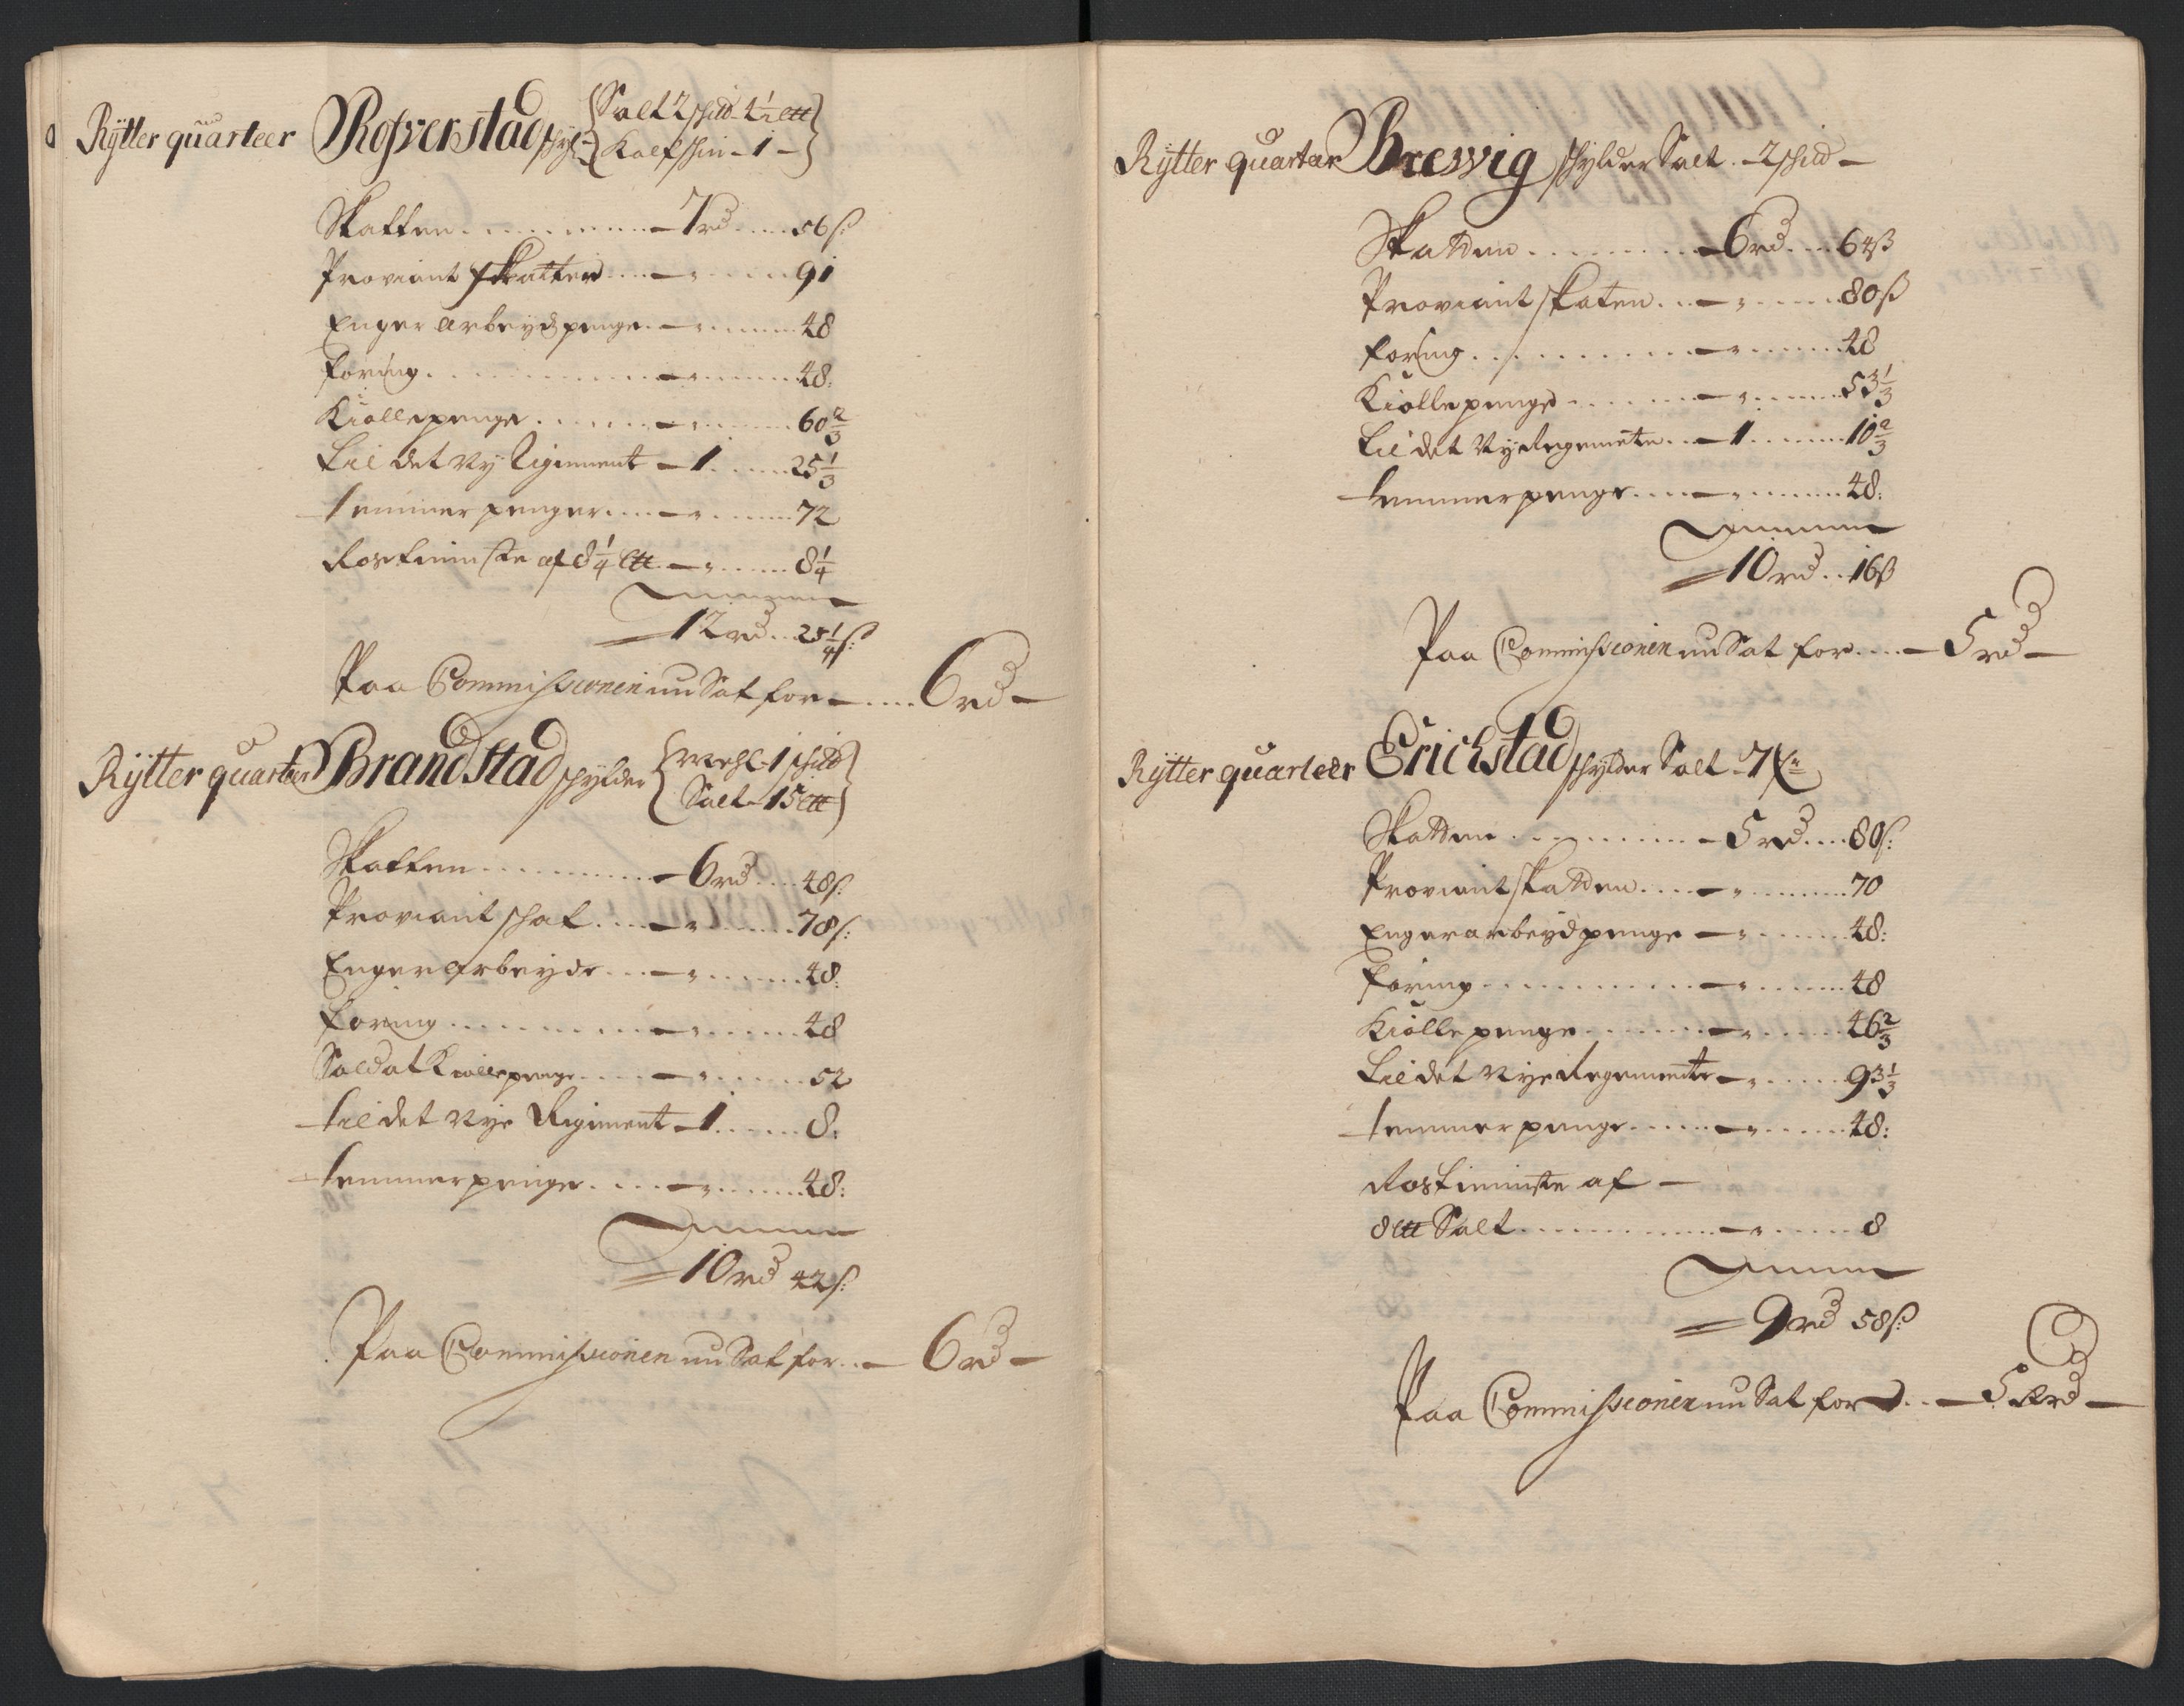 Rÿtter quarteer Rofverstad schyl: Salt 2 schild 4½ ℔
Kalfschin - 1 -
Skatten - 7 rd 56 ß:
Proviant skatten - " 91
Enger arbeÿds penge - " 48
Foring - " 48:
Kiollepenge - " 60 2/3
Til det Ny Rigiment - 1 25 1/3
Temmer penger - " 72
Rostieniste af 8 1/4 ℔ - " 8 1/4
Summa
12 rd 25 1/4 ß:
Paa Commissionen nu Sat for - 6 rd -
Rÿtter quarteer Brandstad schylder Mehl - 1 schild
Salt - 15 ℔
Skatten - 6 rd 48 ß:
Proviant schat - " 78 ß:
Enger Arbeyde - " 48:
Foring - " 48
Soldat Kiollepenge - " 52
Til det Nye Rigiment - 1 8:
Temmerpenge - " 48:
Summa
10 rd 42 ß:
Paa Commissionen nu Sat for - 6 rd -
Rÿtter quarteer Brevig schylder Salt - 2 schild -
Skatten - 6 rd 64 ß
Proviant skaten - " 80 ß
Foring - " 48
Kiollepenge - " 53 1/3
Til det Nye Regemente - 1 10 2/3
Temmerpenge - " 48:
Summa
10 rd 16 ß
Paa Commissionen nu Sat for - 5 rd -
Rÿtter quarteer Erichstad schylder Salt - 7
Skatten - 5 rd 80 ß:
Proviant skatten - " 70
Enger arbeyd penge - " 48:
Foring - " 48
Kiolle penge - " 46 2/3
Til det Nye Regemente - " 93 1/3
Temmer penge - " 48:
Rostieniste af -
8 ℔ Salt - " 8
Summa
9 rd 58 ß:
Paa Commissionen nu Sat for - 5 rd -